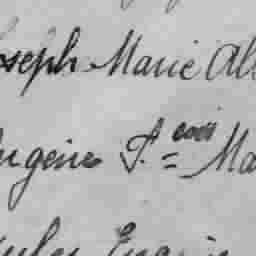 oseph Marie Al
ugène F.= Ma
ules Eugèn